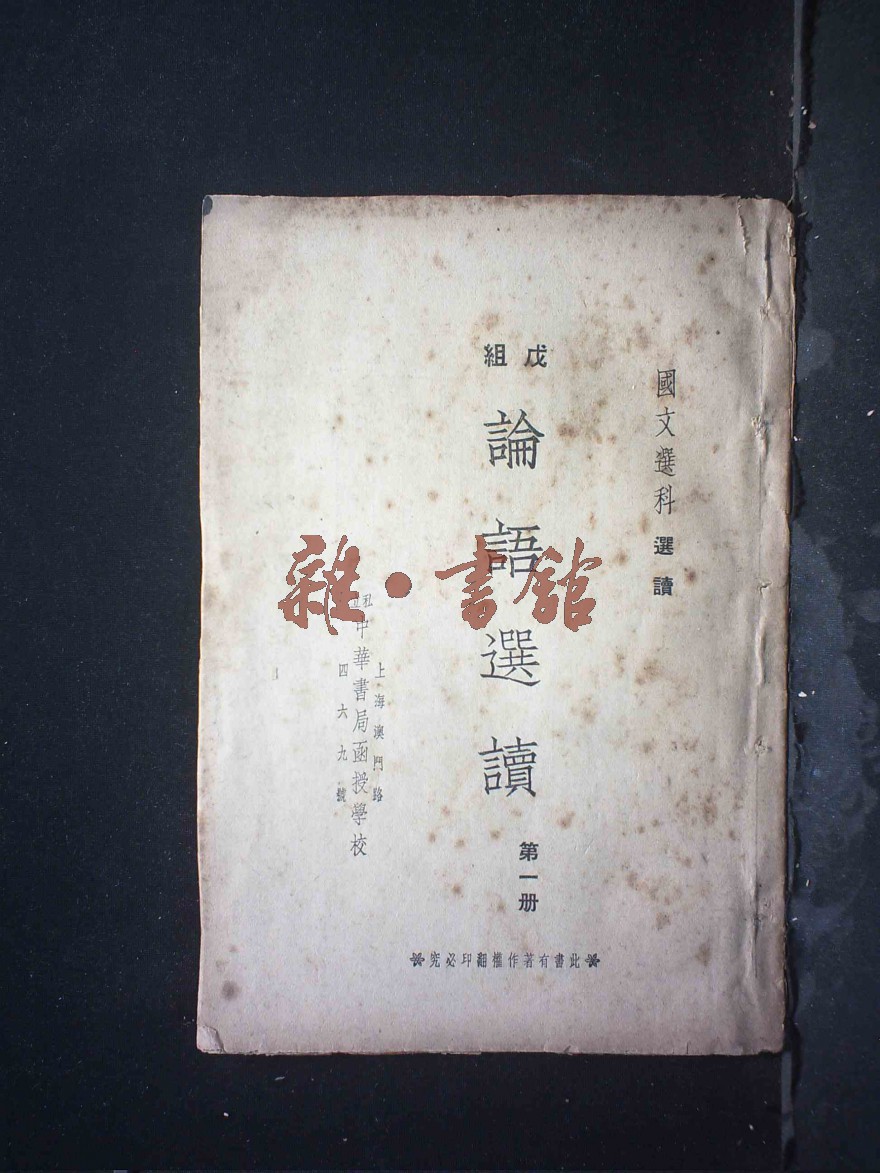 國文選科 選讀
戊組
論語選讀
第一册
上海澳門路
私立中華書局函授學校
四六九號
此書有著作權翻印必究
雜·書館